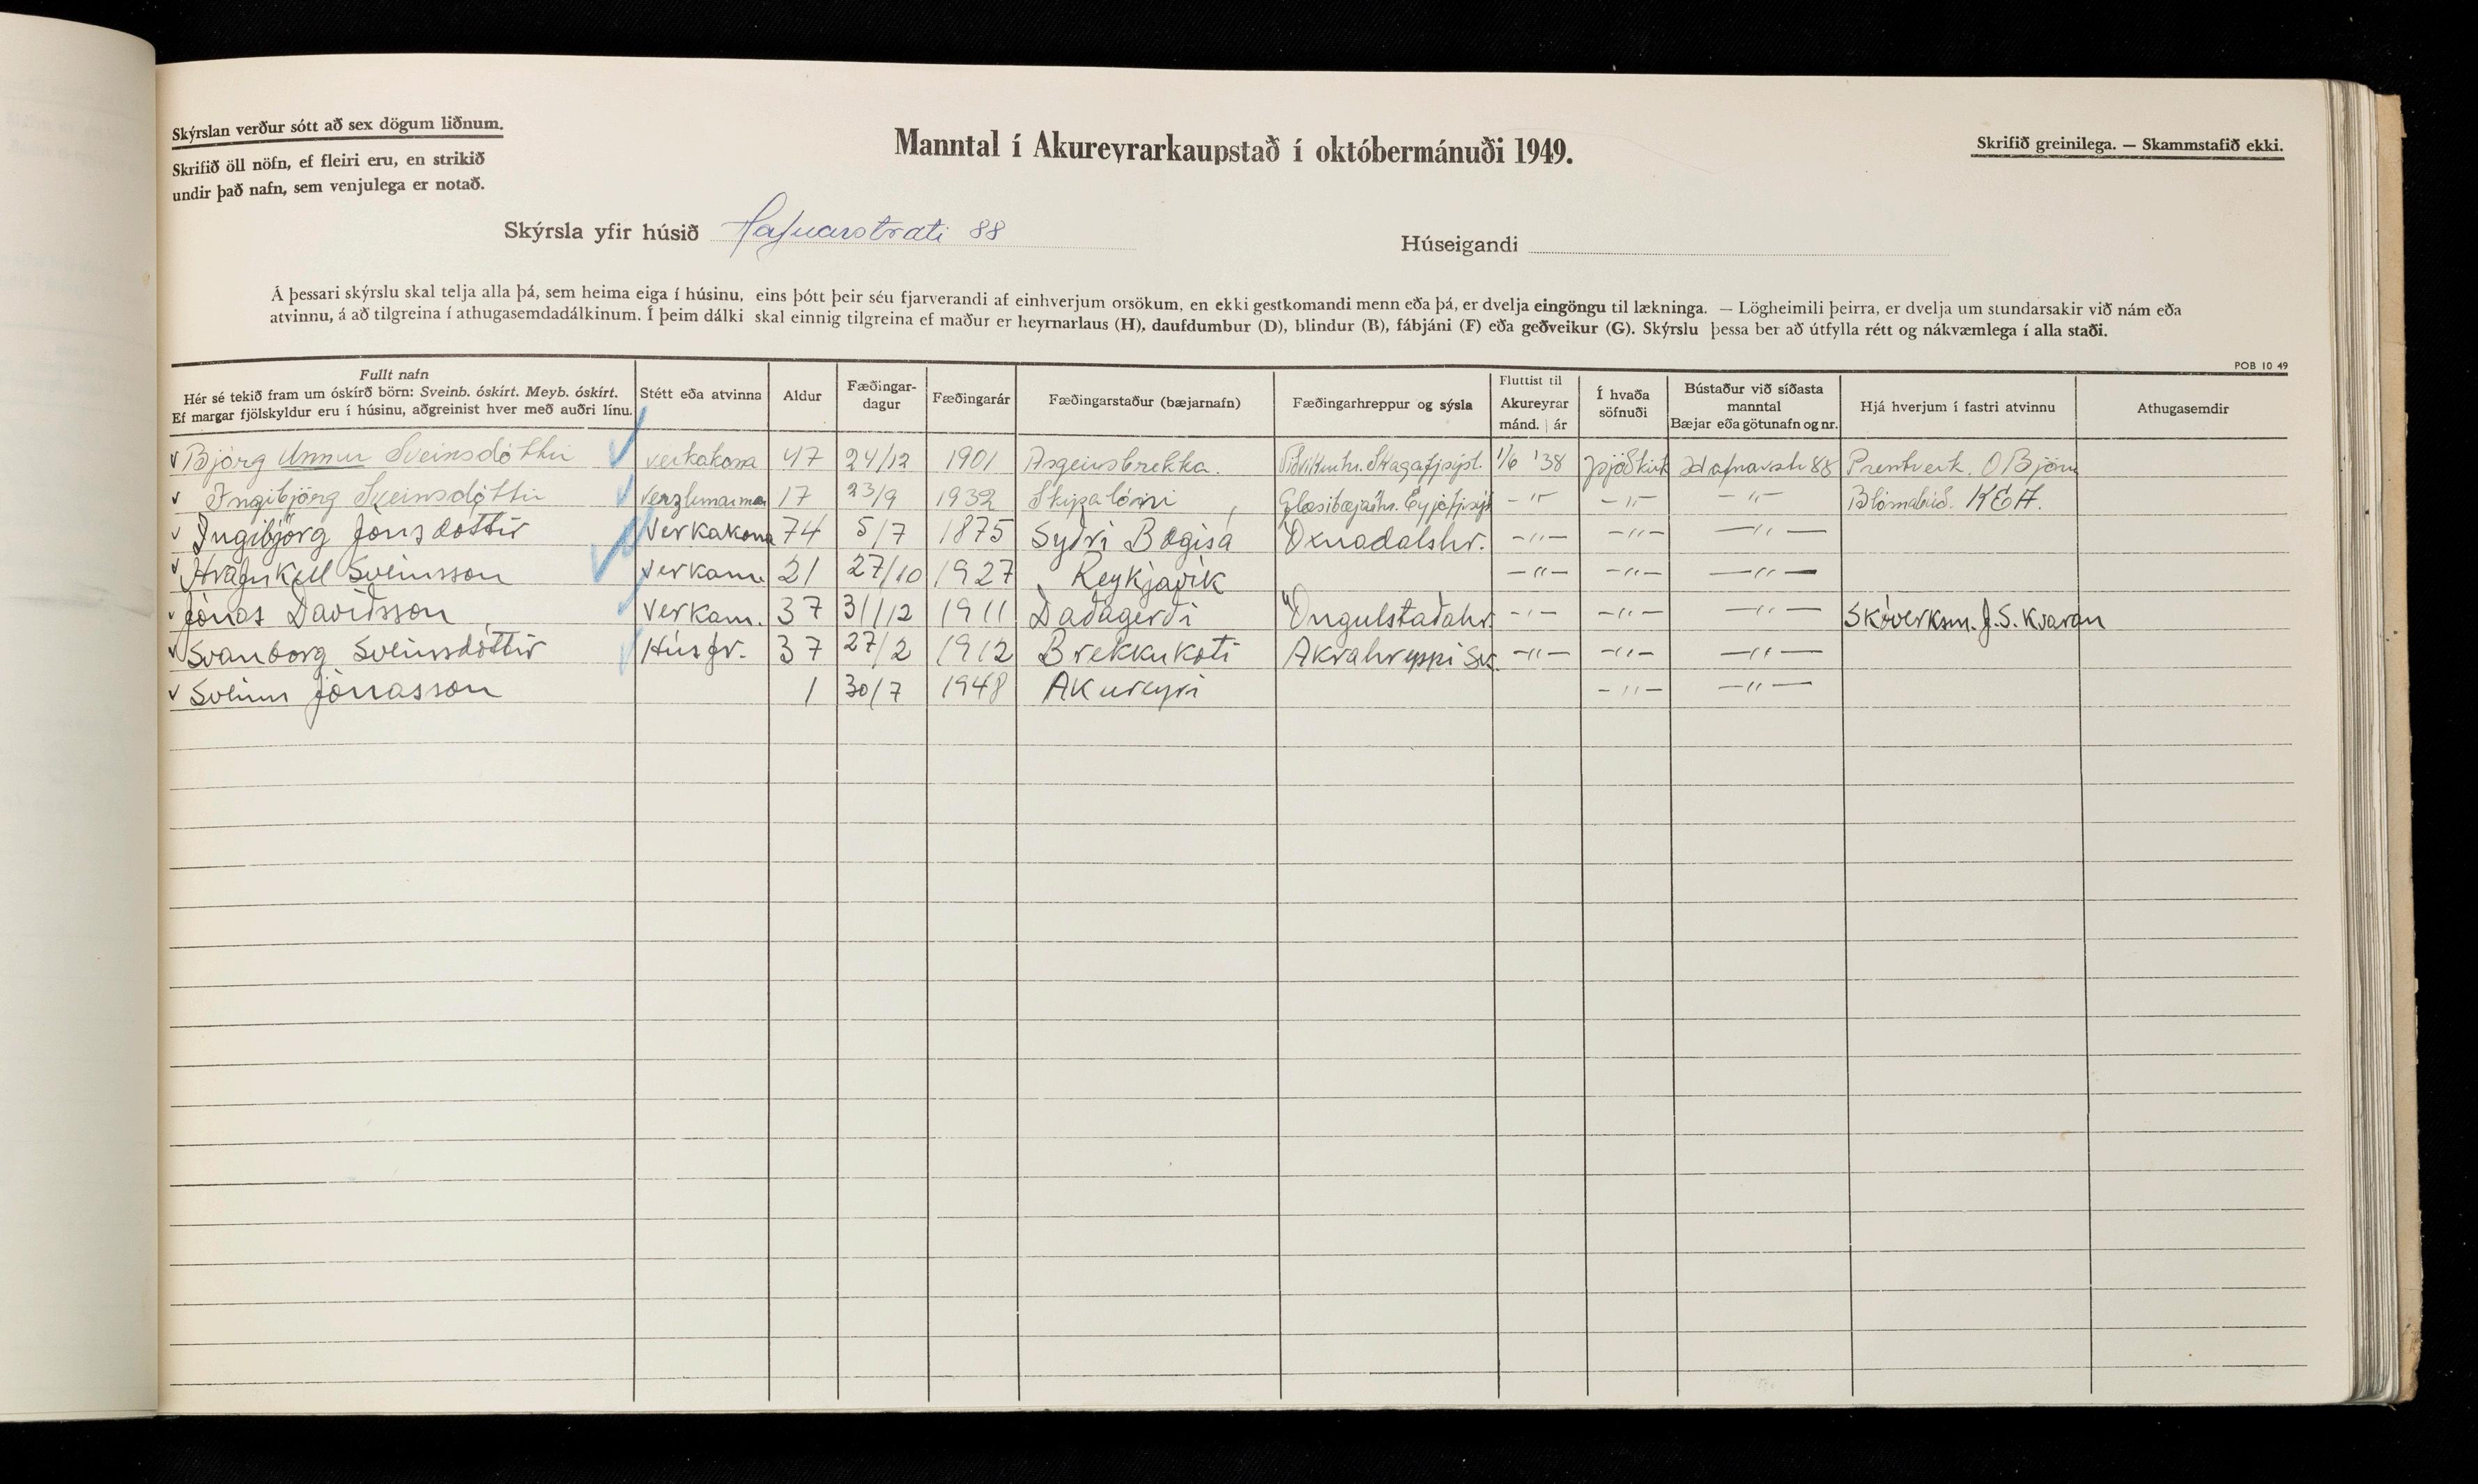 Skýrslan verður sótt að sex dögum liðnum.
Skrifið öll nöfn, ef fleiri eru, en strikið
undir það nafn, sem venjulega er notað.
Manntal í Akureyrarkaupstað í októbermánuði 1949.
Skrifið greinilega. — Skammstafið ekki.
Skýrsla yfir húsið Hafnarstræti 88
Húseigandi
Á þessari skýrslu skal telja alla þá, sem heima eiga í húsinu, eins þótt þeir séu fjarverandi af einhverjum orsökum, en ekki gestkomandi menn eða þá, er dvelja eingöngu til lækninga. — Lögheimili þeirra, er dvelja um stundarsakir við nám eða
atvinnu, á að tilgreina í athugasemdadálkinum. Í þeim dálki skal einnig tilgreina ef maður er heyrnarlaus (H), daufdumbur (D), blindur (B), fábjáni (F) eða geðveikur (G). Skýrslu þessa ber að útfylla rétt og nákvæmlega í alla staði.
POB 10 49
Fullt nafn
Hér sé tekið fram um óskírð börn: Sveinb. óskírt. Meyb. óskírt.
Ef margar fjölskyldur eru í húsinu, aðgreinist hver með auðri línu.
Stétt eða atvinna
Aldur
Fæðingar-
dagur
Fæðingarár
Fæðingarstaður (bæjarnafn)
Fæðingarhreppur og sýsla
Fluttist til
Akureyrar
mánd. | ár
Í hvaða
söfnuði
Bústaður við síðasta
manntal
Bæjar eða götunafn og nr.
Hjá hverjum í fastri atvinnu
Athugasemdir
Björg Unnur Sveinsdóttir verkakona 47 24/12 1901 Ásgeirsbrekka. Viðvíkurhr. Skagafjsýsl. 1/6 '38 þjóðkirk Hafnarstr 88 Prentverk. O Björns
Ingibjörg Sveinsdóttir 17 23/9 1932 Skipalóni Glæsibæjarhr. Eyjafjsýs -"- -"- -"- Blómabúð. KEA.
Ingibjörg Jónsdóttir Verkakona 74 5/7 1875 Syðri Bægisá Öxnadalshr. -"- -"- -"-
Hrafnkell Sveinsson Verkam. 21 27/10 1927 Reykjavík -"- -"- -"-
Jónas Davíðsson Verkam. 37 31/12 1911 Daðagerði Öngulstaðahr. -"- -"- -"- Skóverksm. J.S. Kvaran
Svanborg Sveinsdóttir Húsfr. 37 27/2 1912 Brekkukoti Akrahreppi Sk. -"- -"- -"-
Sveinn Jónasson 1 30/7 1948 Akureyri -"- -"-